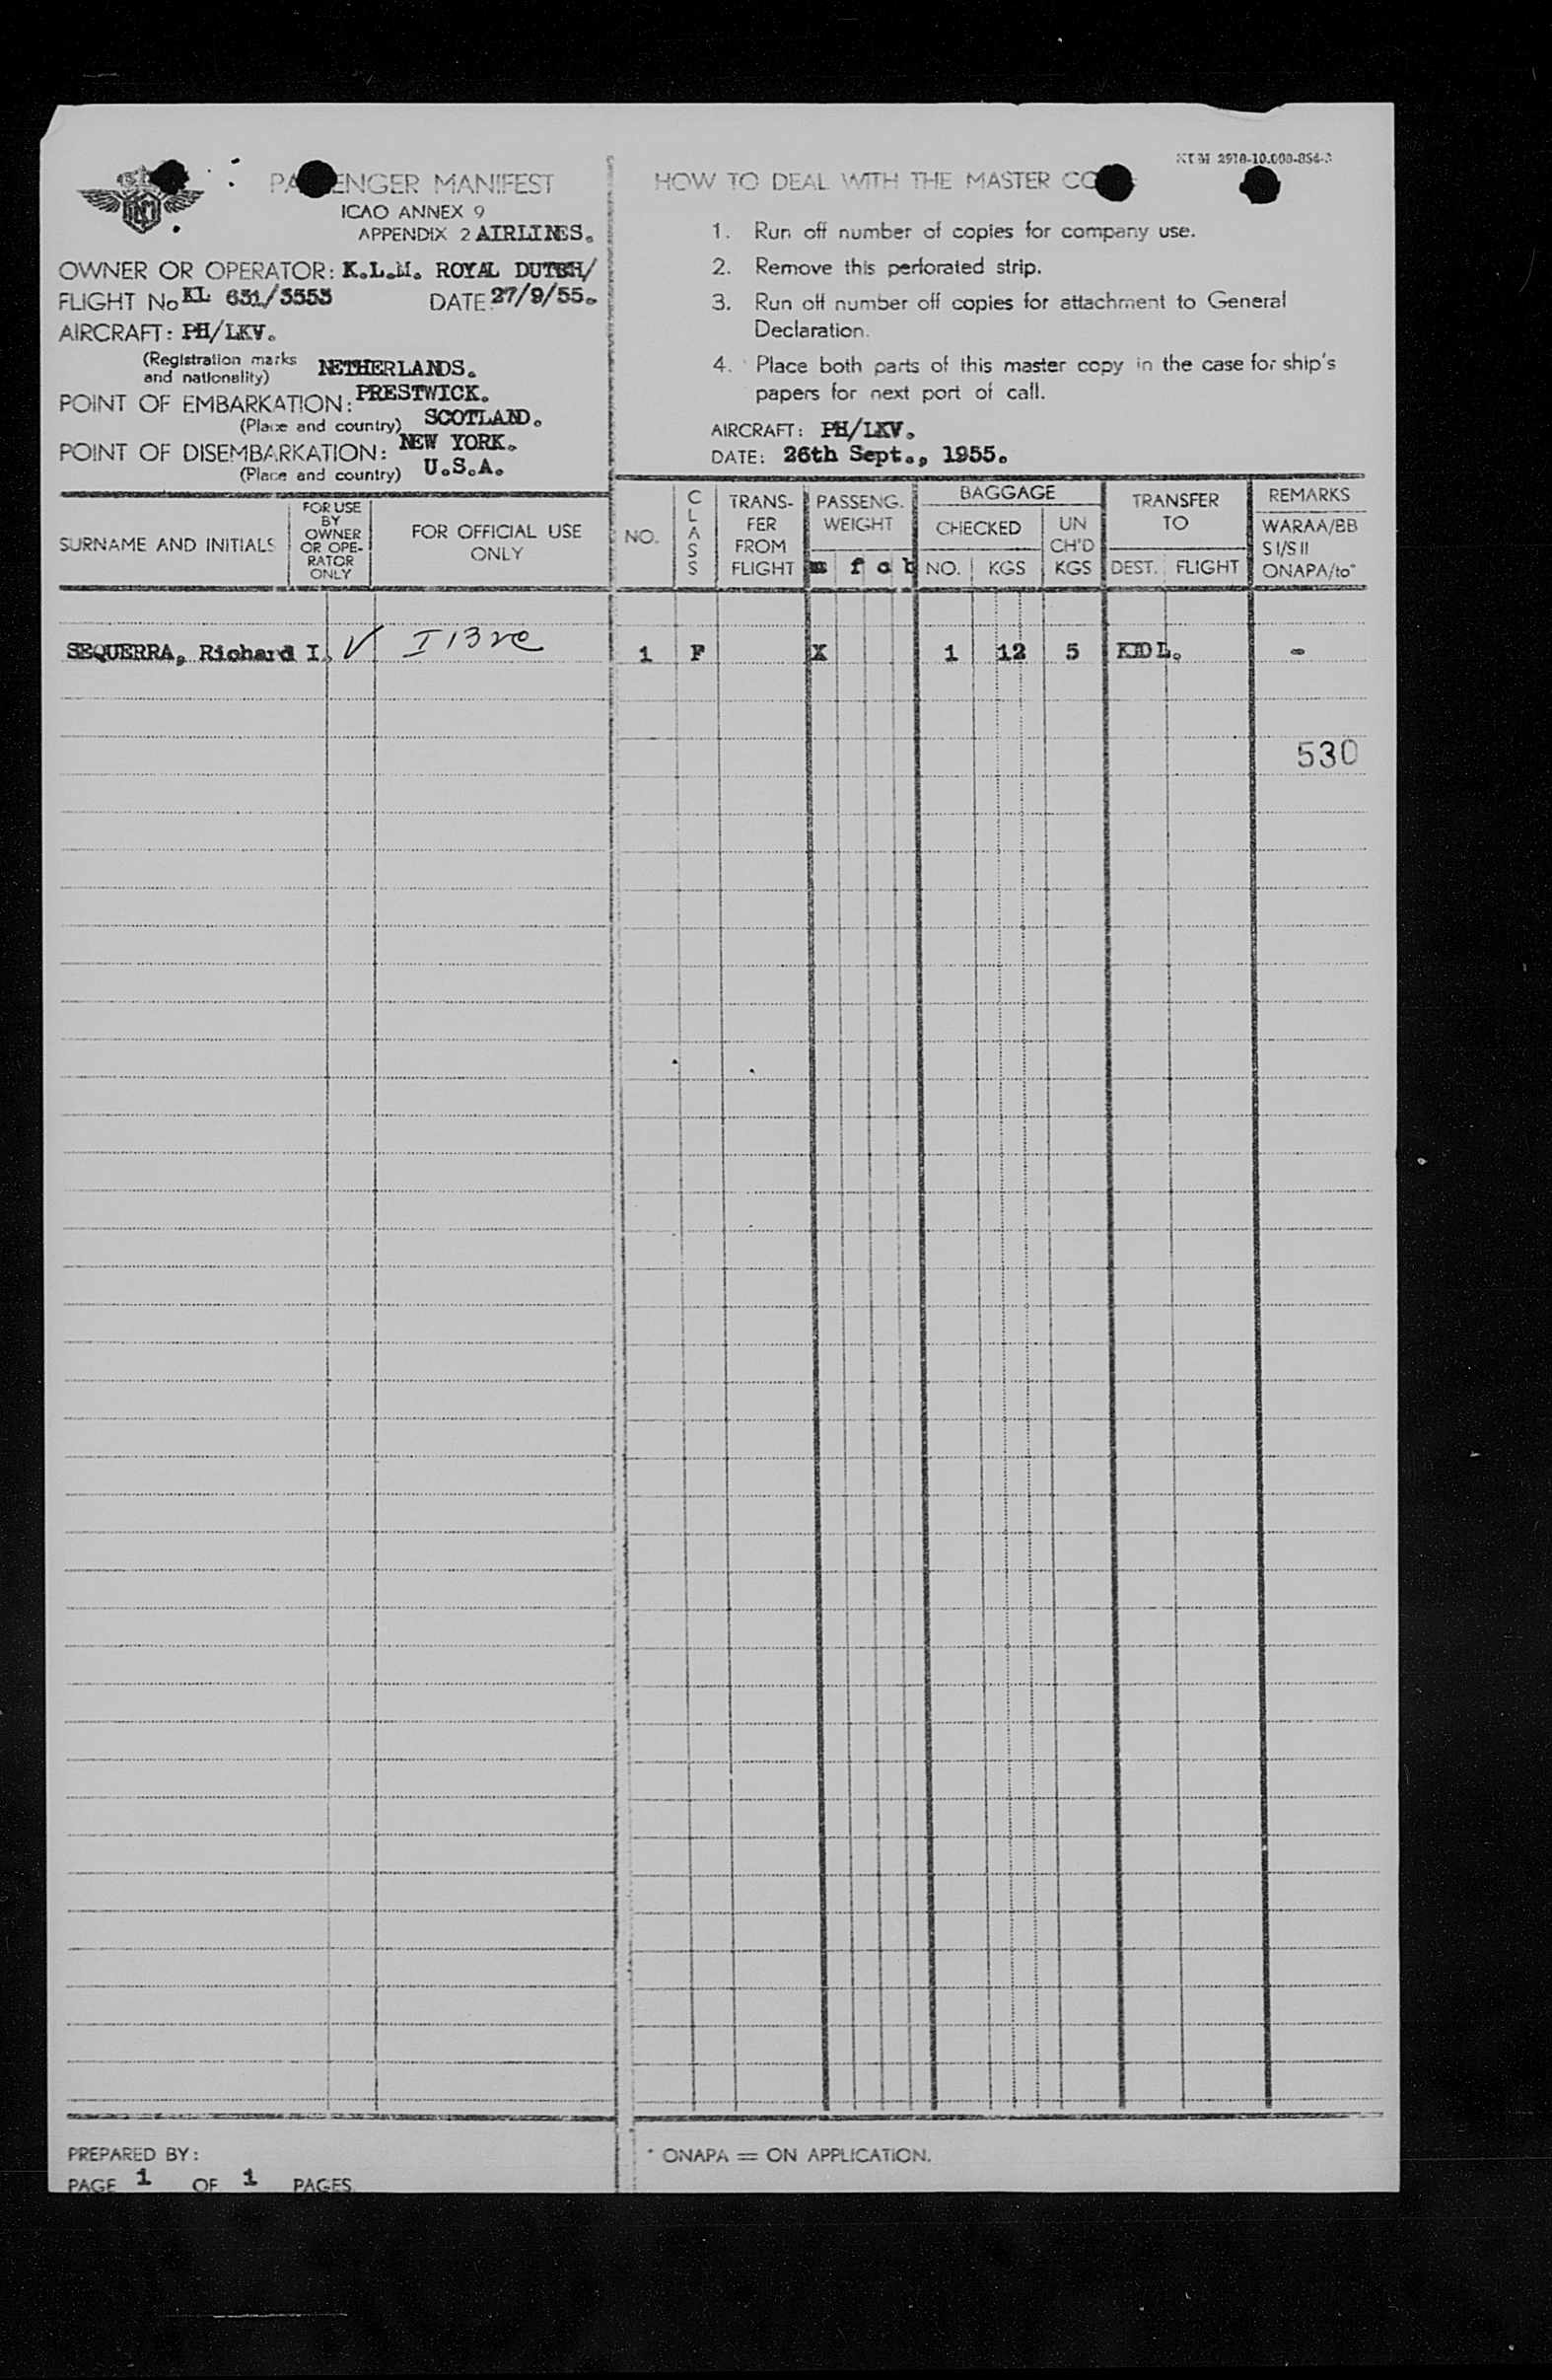 PA ENGER MANIFEST
ICAO ANNEX 9
APPENDIX 2 AIRLINES.
OWNER OR OPERATOR: K.L.M. ROYAL DUTCH/
FLIGHT No KL 631/3553 DATE 27/9/55.
AIRCRAFT: PH/LKV.
(Registration marks
and nationality) NETHERLANDS.
POINT OF EMBARKATION: PRESTWICK.
(Place and country) SCOTLAND.
POINT OF DISEMBARKATION: NEW YORK.
(Place and country) U.S.A.
HOW TO DEAL WITH THE MASTER CO
1. Run off number of copies for company use.
2. Remove this perforated strip.
3. Run off number off copies for attachment to General
Declaration.
4. Place both parts of this master copy in the case for ship's
papers for next port of call.
AIRCRAFT: PH/LKV.
DATE: 26th Sept., 1955.
SURNAME AND INITIALS
FOR USE
BY
OWNER
OR OPE-
RATOR
ONLY
FOR OFFICIAL USE
ONLY
NO.
CLASS
TRANS-
FER
FROM
FLIGHT
PASSENG.
WEIGHT
m f c b
BAGGAGE
CHECKED
NO. KGS
UN
CH'D
KGS
TRANSFER
TO
DEST. FLIGHT
REMARKS
WARAA/BB
S I/S II
ONAPA/to*
SEQUERRA, Richard I. V 1 F X 1 12 5 KDL. -
530
PREPARED BY:
PAGE 1 OF 1 PAGES
* ONAPA = ON APPLICATION.